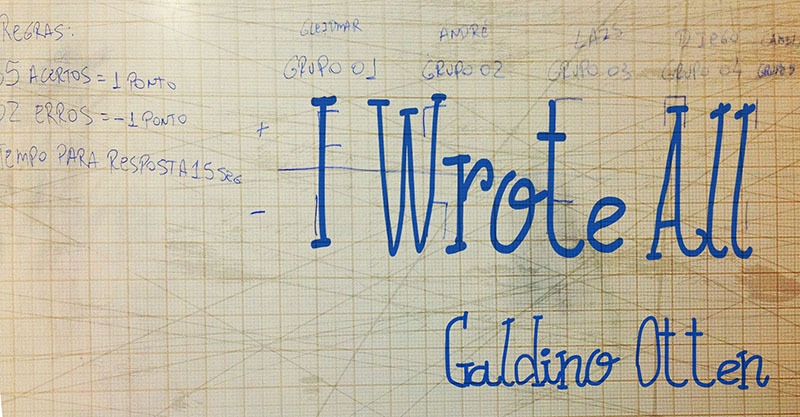 REGRAS:
05 ACERTOS = 1 PONTO
02 ERROS = -1 PONTO
TEMPO PARA RESPOSTA 15 SEG
GLEIDMAR ANDRÉ LAIS DIEGO
GRUPO 01 GRUPO 02 GRUPO 03 GRUPO 04
+
-
I Wrote All
Galdino Otten